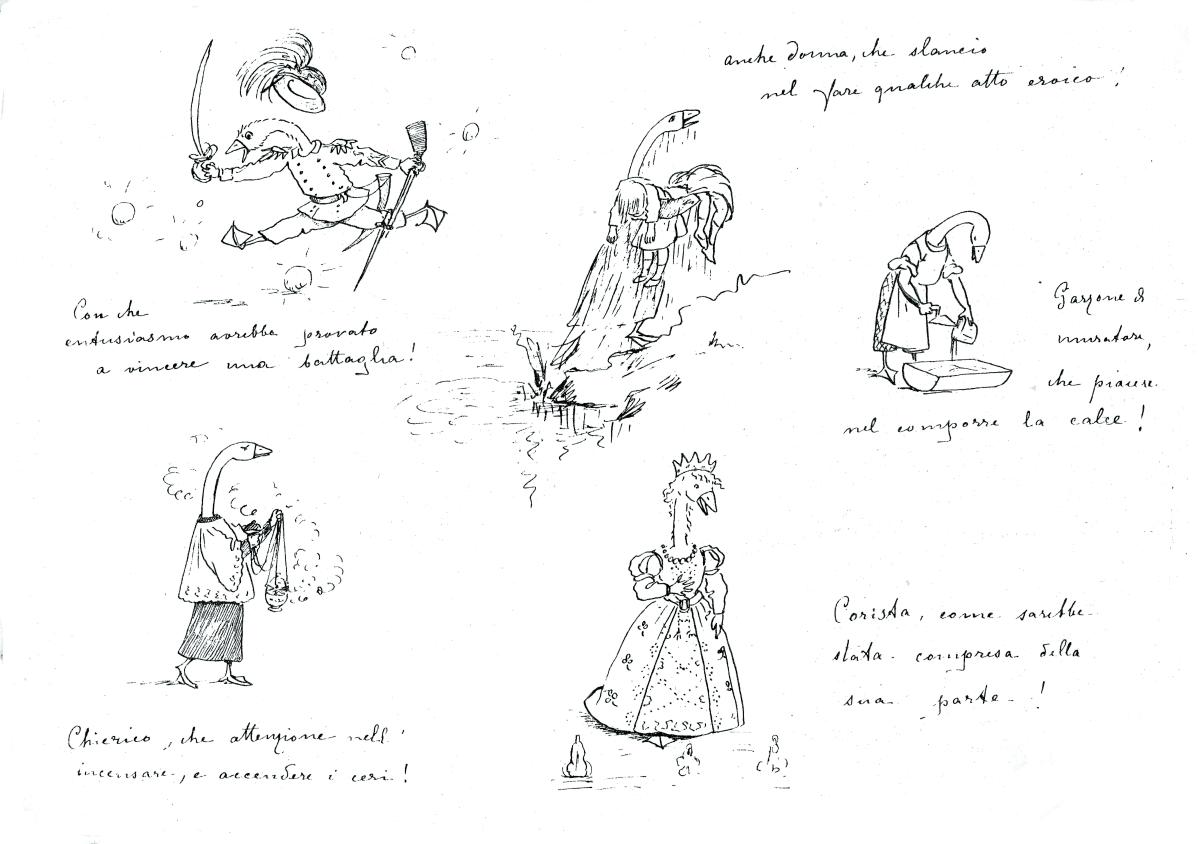 anche donna, che slancio
nel fare qualche atto eroico!
Con che
entusiasmo avrebbe provato
a vincere una battaglia!
Garzone di
muratore,
che piacere
nel comporre la calce!
Chierico, che attenzione nell'
incensare, e accendere i ceri!
Corista, come sarebbe
stata compresa della
sua parte!